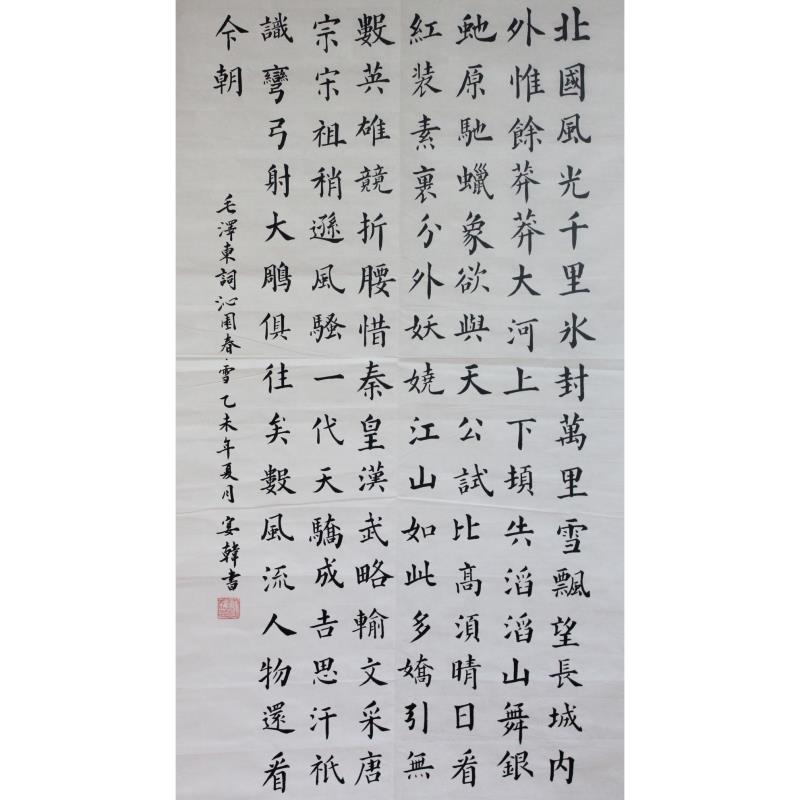 北國風光千里氷封萬里雪飄望長城内
外惟餘莽莽大河上下頓失滔滔山舞銀
虵原馳蠟象欲與天公試比高須晴日看
紅装素裹分外妖嬈江山如此多嬌引無
數英雄競折腰惜秦皇漢武略輸文采唐
宗宋祖稍遜風騷一代天驕成吉思汗祇
識彎弓射大鵰俱往矣數風流人物還看
今朝
毛澤東詞沁園春·雪乙未年夏月宴韓書